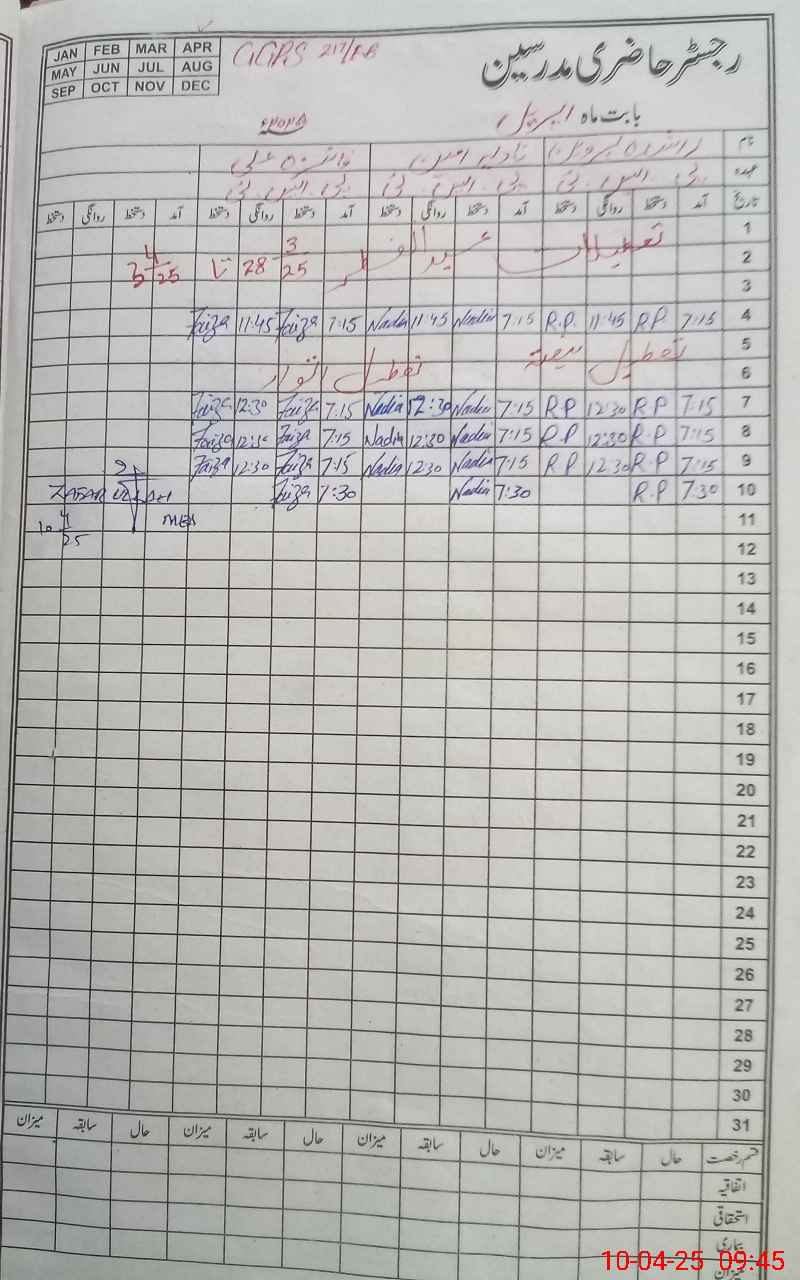 JAN FEB MAR APR
MAY JUN JUL AUG
SEP OCT NOV DEC
رجسٹر حاضری مدرسین
بابت ماہ اپریل
نام نادیہ فائزہ علی
عہدہ پی۔ایس۔ٹی پی۔ایس۔ٹی پی۔ایس۔ٹی
تاریخ آمد دستخط روانگی دستخط آمد دستخط روانگی دستخط آمد دستخط روانگی دستخط آمد دستخط روانگی دستخط
1
تعطیلات عید الفطر 28 3/25 تا 3 4/25
2
3
4 7:15 R.P. 11:45 R.P. 7:15 Nadia 11:45 Nadia 7:15 Faiza 11:45 Faiza
5
تعطیل تعطیل اتوار
6
7 7:15 R.P 12:30 R.P 7:15 Nadia 12:30 Nadia 7:15 Faiza 12:30 Faiza
8 7:15 R.P 12:30 R.P 7:15 Nadia 12:30 Nadia 7:15 Faiza 12:30 Faiza
9 7:15 R.P 12:30 R.P 7:15 Nadia 12:30 Nadia 7:15 Faiza 12:30 Faiza
10 7:30 R.P 7:30 Nadia 7:30 Faiza
ZAFAR ULLAH
11 MEA
10 4/25
12
13
14
15
16
17
18
19
20
21
22
23
24
25
26
27
28
29
30
31
قسم رخصت حال سابقہ میزان حال سابقہ میزان حال سابقہ میزان حال سابقہ میزان
اتفاقیہ
استحقاقی
بیماری
میزان
10-04-25 09:45